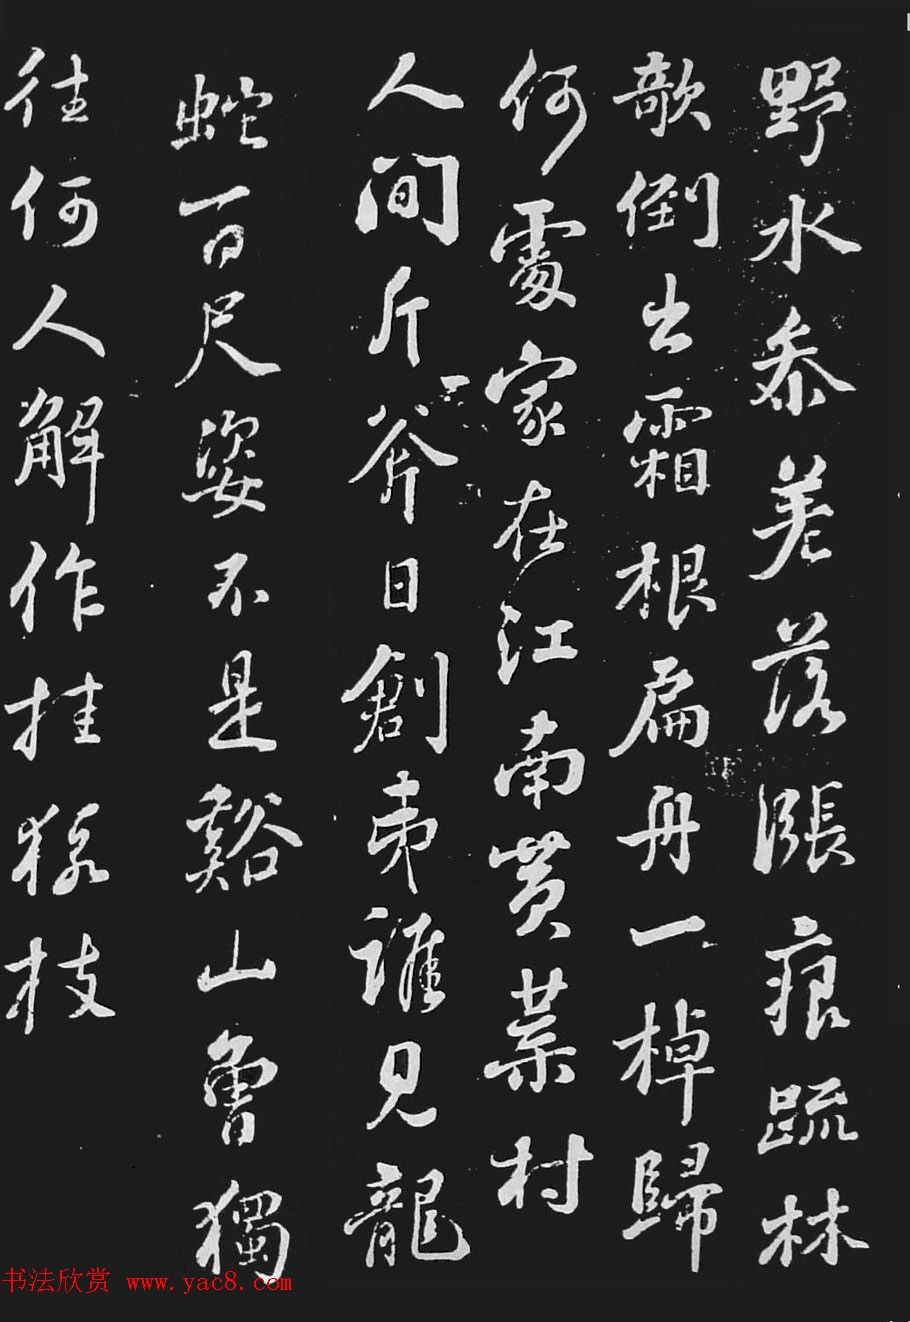 野水參差落漲痕疏林
欹倒出霜根扁舟一棹歸
何處家在江南黃葉村
人間斤斧日創夷誰見龍
蛇百尺姿不是谿山曾獨
往何人解作挂猨枝
书法欣赏 www.yac8.com